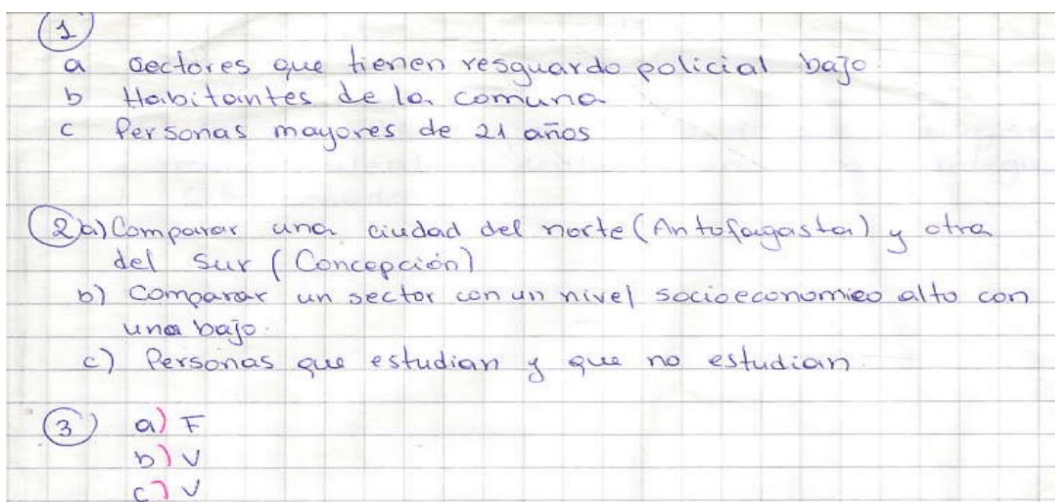 1
a sectores que tienen resguardo policial bajo.
b Habitantes de la comuna
c Personas mayores de 21 años
2 a) Comparar una ciudad del norte (Antofagasta) y otra
del Sur (Concepción)
b) Comparar un sector con un nivel socioeconomico alto con
una bajo.
c) Personas que estudian y que no estudian.
3) a) F
b) V
c) V